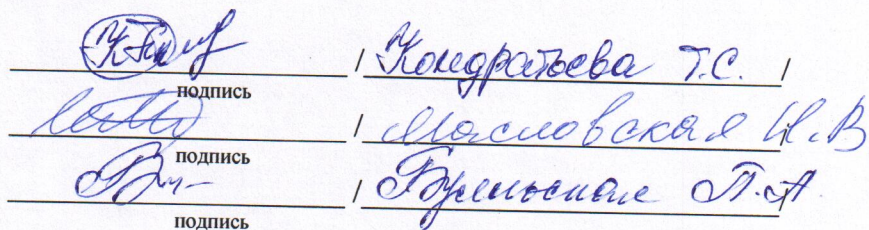 / Кондратьева Т.С. /
подпись
/ Масловская И.В
подпись
/ П.А.
подпись